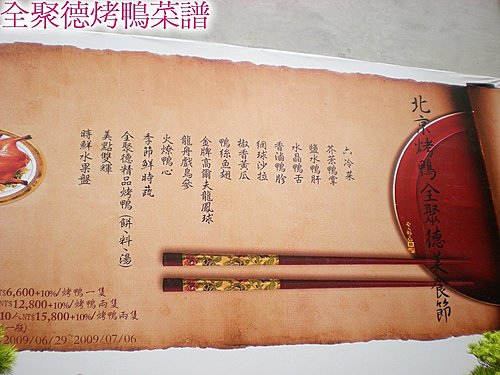 全聚德烤鴨菜譜
北京烤鴨全聚德美食節
六冷菜
芥菜鴨掌
鹽水鴨肝
香滷鴨胗
水晶鴨舌
網球沙拉
椒香黃瓜
鴨絲魚翅
金牌高爾夫龍鳳球
龍舟戲烏參
火燎鴨心
季節鮮時蔬
全聚德精品烤鴨(餅、料、湯)
美點雙輝
時鮮水果盤
NT$6,600+10%/烤鴨一隻
NT$12,800+10%/烤鴨兩隻
10人NT$15,800+10%/烤鴨兩隻
一瓶)
2009/06/29~2009/07/06